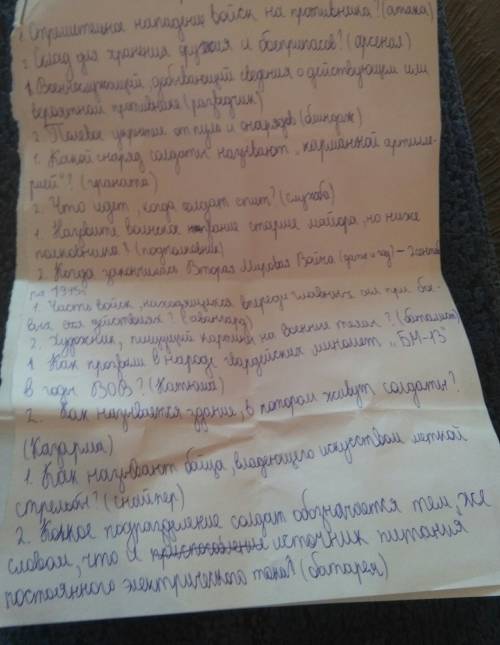 1. Стремительное нападение войск на противника? (атака)
2. Склад для хранения оружия и боеприпасов? (арсенал)
1. Военнослужащий, добывающий сведения о действующем или
вероятном противнике (разведчик)
2. Полевое укрытие от пуль и снарядов (блиндаж)
1. Какой снаряд солдаты называют "карманной артилле-
рией"? (граната)
2. Что идет, когда солдат спит? (служба)
1. Назовите воинское звание старше майора, но ниже
полковника? (подполковник)
2. Когда закончилась Вторая Мировая Война (дата и год) - 2 сентя
1945г
1. Часть войск, находящихся впереди главных сил при
действиях? (авангард)
2. Художник, пишущий картины на военные темы? (баталист)
1. Как прозвали в народе гвардейских миномет "БМ-13"
в годы ВОВ? (Катюша)
2. Как называется здание, в котором живут солдаты?
(Казарма)
1. Как называют бойца, владеющего искусством меткой
стрельбы? (снайпер)
2. Какое подразделение солдат обозначается тем же
словом, что и источник питания
постоянного электрического тока? (батарея)